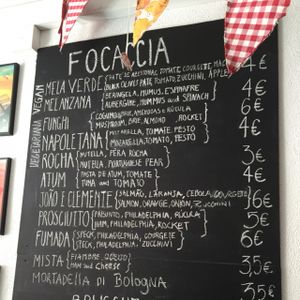 FOCACCIA
VEGETARIANA VEGAN
MELA VERDE
BLACK OLIVES PATE, TOMATO, ZUCCHINI, APPLE
4€
MELANZANA
BERINGELA, HUMUS, ESPINAFRE
AUBERGINE, HUMMUS and SPINACH
4€
FUNGHI
COGUMELOS, BRIE, AMENDOAS e RÚCULA
MUSHROOM, BRIE, ALMOND, ROCKET
6€
NAPOLETANA
MOZARELLA, TOMATE, PESTO
MOZZARELLA, TOMATO, PESTO
4€
ROCHA
NUTELLA, PÊRA ROCHA
NUTELLA, PORTUGUESE PEAR
3€
ATUM
PASTA DE ATUM, TOMATE
TUNA and TOMATO
4€
JOÃO E CLEMENTE
SALMÃO, LARANJA, CEBOLA, COURGETE
SALMON, ORANGE, ONION, ZUCCHINI
6€
PROSCIUTTO
PRESUNTO, PHILADELPHIA, RÚCULA
HAM, PHILADELPHIA, ROCKET
5€
FUMADA
SPECK, PHILADELPHIA, COURGETE
SPECK, PHILADELPHIA, ZUCCHINI
6€
MISTA
FIAMBRE, QUEIJO
HAM and CHEESE
3,5€
MORTADELLA DI BOLOGNA
3,5€